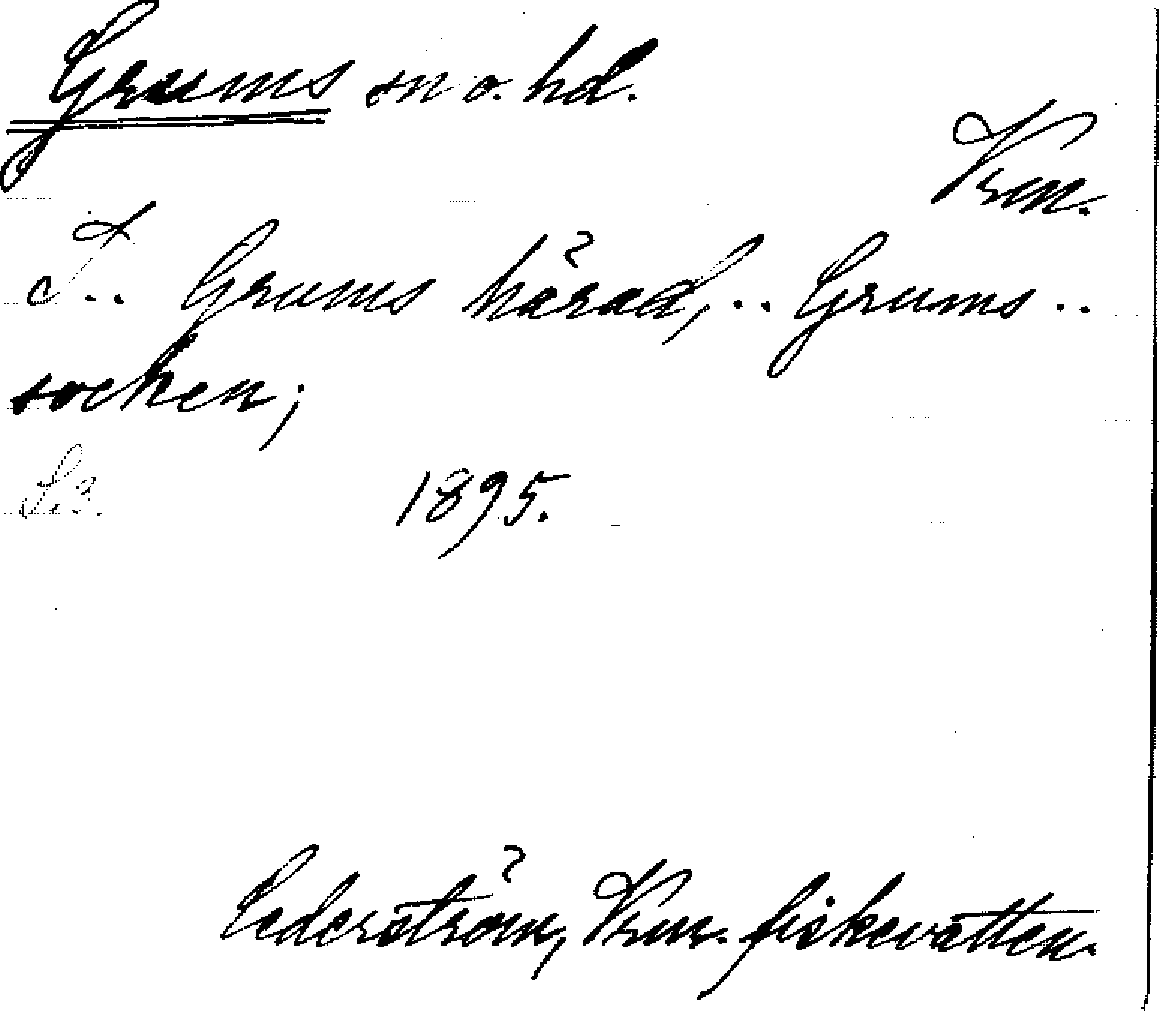 Grums sn o. hd.
Vrm.
I.. Grums härad, .. Grums ..
socken;
S. 3. 1895.
Cederström, Vrm. fiskevatten.